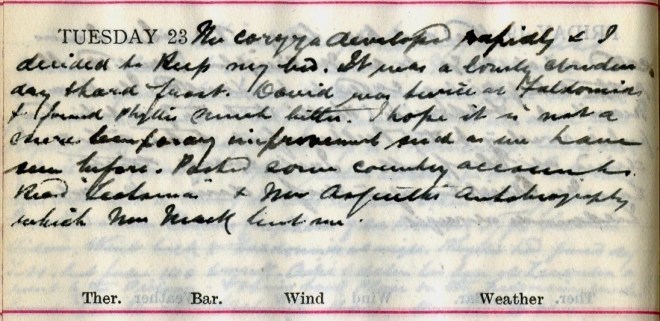 TUESDAY 23 The coryza developed rapidly & I
decided to keep my bed. It was a lovely
day & hard frost. David was twice at
& found Phyllis much better. I hope it is not a
mere temporary improvement such as we have
seen before. Posted some country accounts.
Read & Mrs Asquith's Autobiography
which Mrs Mack lent me.
Ther. Bar. Wind Weather